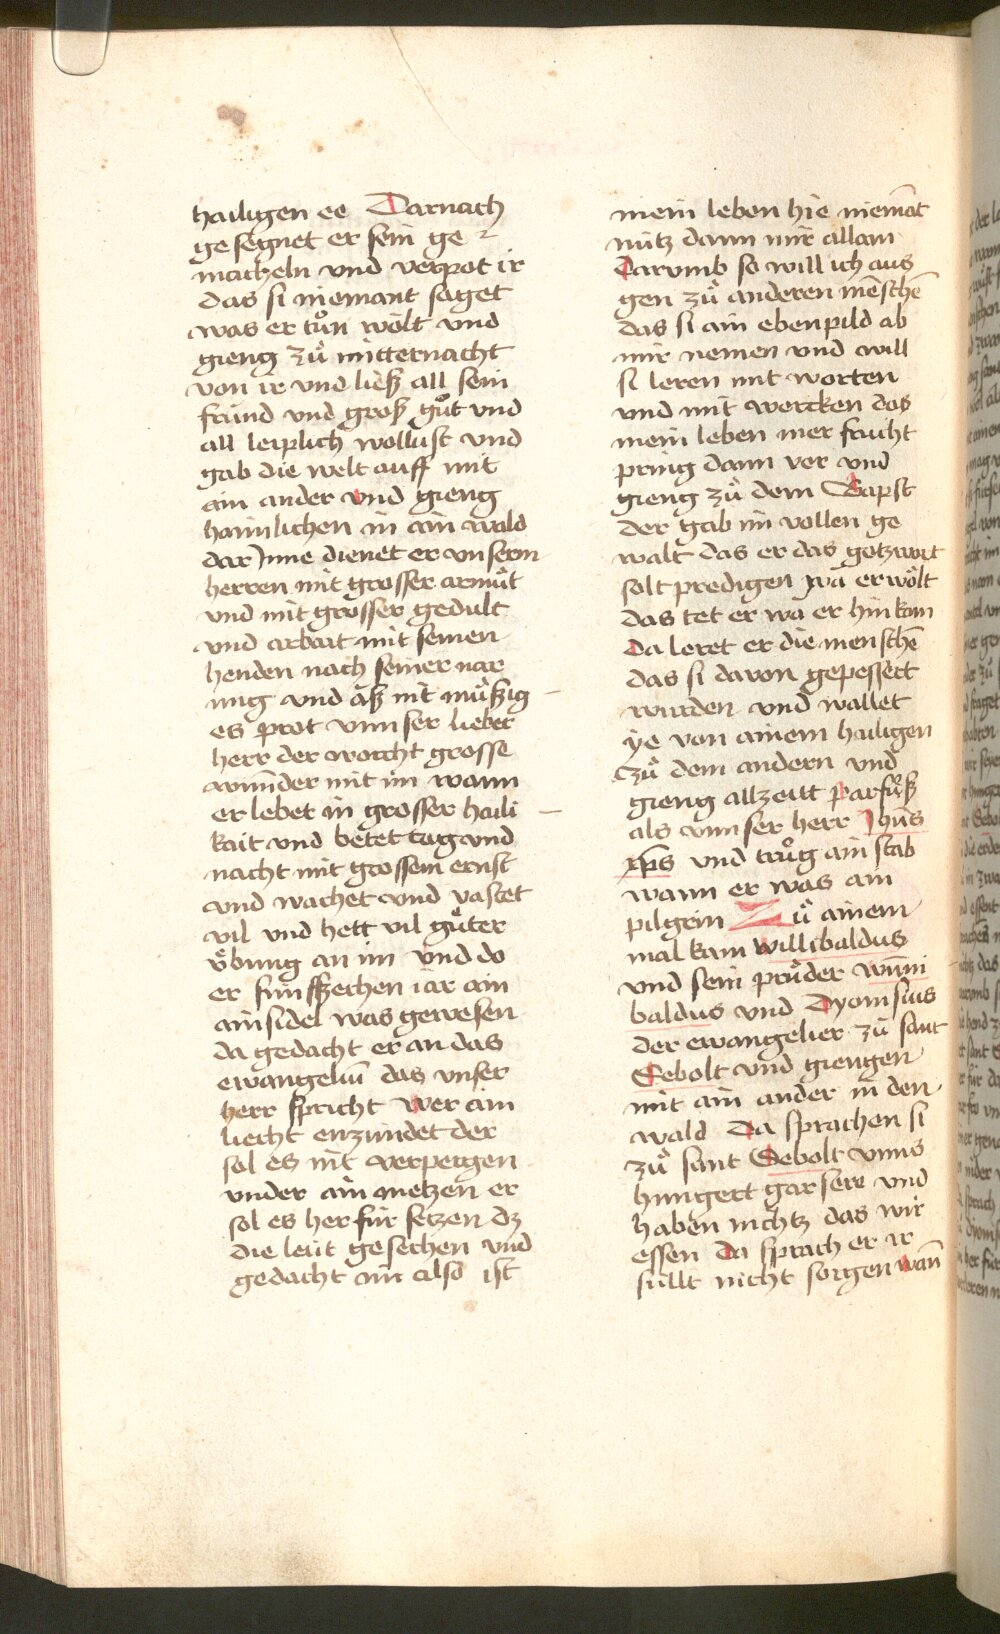 hailigen ee Darnach
gesegnet er sein ge
macheln vnd verpot ir
das si niemant saget
was er tuͦn wolt vnd
gieng zuͦ mitternacht
von ir vnd ließ all sein
fraind vnd groß guͦt vnd
all leiplich wollust vnd
gab die welt auff mit
ain ander vnd gieng
haimlichen in ain wald
dar Inne dienet er vnserm
herren mit grosser armuͦt
vnd mit grosser gedult
vnd arbait mit seinen
henden nach seiner nar
ung vnd aß nit muͤßig
es prot vnnser lieber
herr der worcht grosse
wunder mit im wann
er lebet in grosser haili
kait vnd betet tag vnd
nacht mit grossem ernst
vnd wachet vnd vastet
vil vnd hett vil guͤter
vͤbung an im Vnd do
er funffzechen iar ain
ainsidel was gewesen
da gedacht er an das
ewangeliū das vnser
herr spricht Wer ain
liecht enzundet der
sol es nit verpergen
vnder ain metzen er
sol es her fur setzen dz
die leut gesechen vnd
gedacht im also ist
mein leben hie niemāt
nutz dann mir allain
Darvmb so will ich aus
gen zuͦ anderen mēschē
das si ain ebenpild ab
mir nemen vnd will
si leren mit worten
vnd mit wercken das
mein leben mer frucht
pring dann vor vnd
gieng zuͦ dem Bapst
der gab im vollen ge
walt das er das gotzwort
solt predigen wa er wolt
das tet er wa er hin kam
Da leret er die menschē
das si davon gepessert
wurden vnd wallet
ye von ainem hailigen
zuͦ dem andern vnd
gieng allzeitt parfuͦß
als vnnser herr Jhūs
xp̄s vnd truͦg ain stab
wann er was ain
pilgrim Zuͦ ainem
mal kam willibaldus
vnd sein pruͦder wūni
baldus vnd Dyonisius
der ewangelier zuͦ sant
Sebolt vnd giengen
mit ain ander in den
wald Da sprachen si
zuͦ sant Sebolt vnns
hungert gar sere vnd
haben nichtz das wir
essen da sprach er ir
sullt nicht sorgen wañ